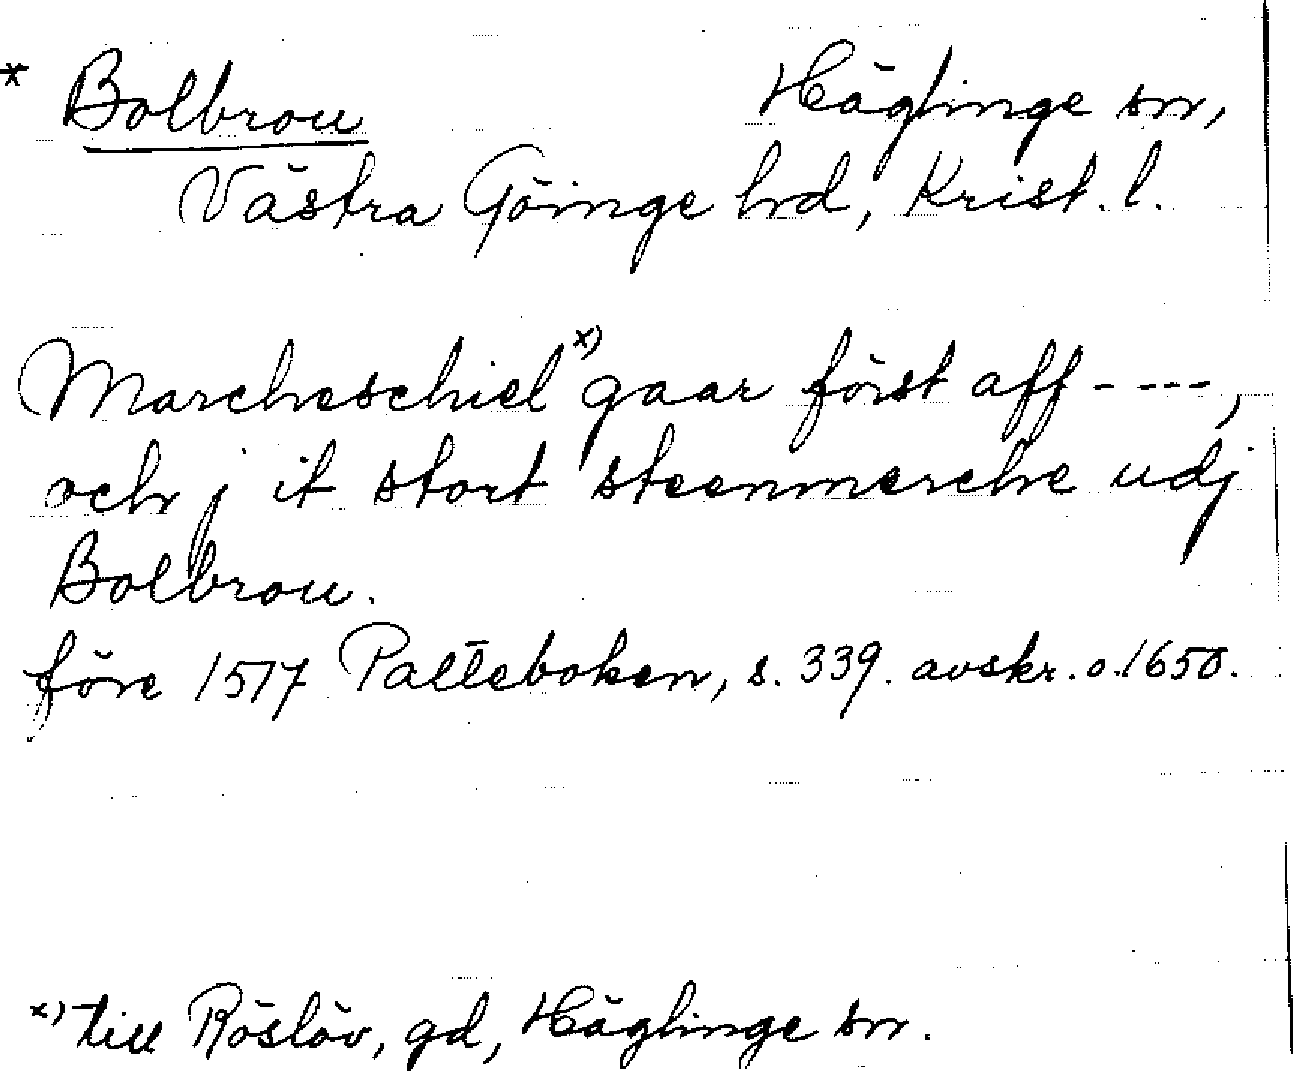 * Bolbrou Häglinge sn,
Västra Göinge hd, Krist. l.
Marcheschiel x) gaar först aff ----,
och j it stort steenmerche udj
Bolbrou.
före 1517 Palteboken, s. 339. avskr. o. 1650.
x) till Röslöv, gd, Häglinge sn.